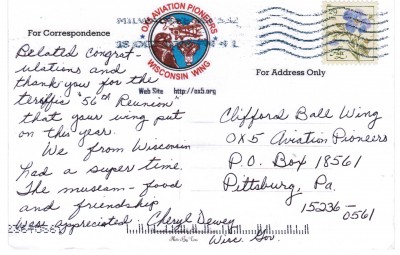 For Correspondence
OX5 AVIATION PIONEERS
WISCONSIN WING
Web Site http://ox5.org
For Address Only
Belated congrat-
ulations and
thank you for the
terrific "56th Reunion"
that your wing put
on this year.
We from Wisconsin
had a super time.
The museam - food
and friendship
were appreciated. Cheryl Dewey
Wisc. Gov.
Clifford Ball Wing
OX5 Aviation Pioneers
P.O. Box 18561
Pittsburg, Pa.
15236-
0561